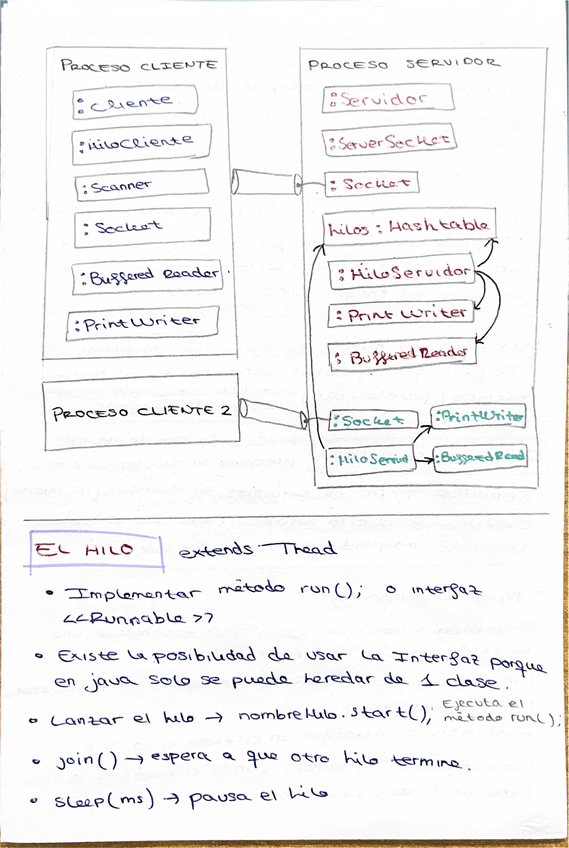 PROCESO CLIENTE
:Cliente
:HiloCliente
:Scanner
:Socket
:Buffered Reader
:PrintWriter
PROCESO CLIENTE 2
PROCESO SERVIDOR
:Servidor
:ServerSocket
:Socket
hilos : Hashtable
:HiloServidor
:Print Writer
:BufferedReader
:Socket
:PrintWriter
:HiloServid
:BufferedRead
EL HILO extends Thead
• Implementar método run(); o interfaz
<<Runnable >>
• Existe la posibilidad de usar la Interfaz porque
en java solo se puede heredar de 1 clase.
• Lanzar el hilo → nombreHilo.start(); Ejecuta el
método run();
• join() → espera a que otro hilo termine.
• sleep(ms) → pausa el hilo